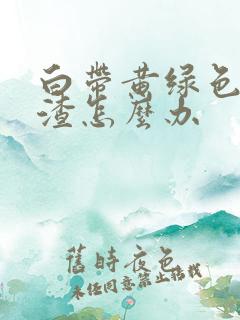 白带黄绿色
渣怎麼办
舊時夜色
未经同意禁止搭载